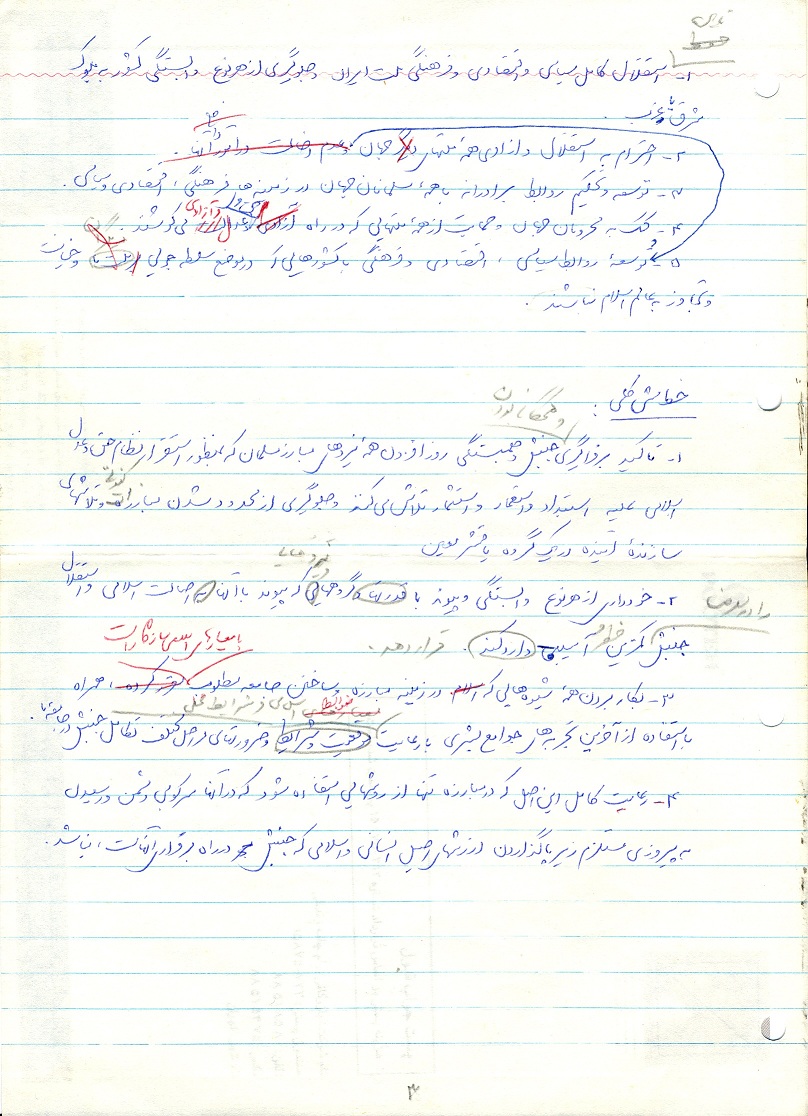 ۱- استقلال کامل سیاسی و اقتصادی و فرهنگی ملت ایران و جلوگیری از هر نوع وابستگی کشور به بلوک
شرق یا غرب.
۲- احترام به استقلال و آزادی همهٔ ملتهای دیگر جهان و عدم دخالت در امور آنها.
۳- توسعه و تحکیم روابط برادرانه با همهٔ مسلمانان جهان در زمینه‌های فرهنگی، اقتصادی و سیاسی.
۴- کمک به محرومان جهان و حمایت از همهٔ ملتهایی که در راه آزادی حق و عدل و آزادی می‌کوشند.
۵- توسعهٔ روابط سیاسی، اقتصادی و فرهنگی با کشورهایی که در موضع سلطه جویی و خیانت
و تجاوز به عالم اسلام نباشند.
خط مشی کلی:
و همگانی بودن
۱- تاکید بر فراگیری جنبش و همبستگی روزافزون همهٔ نیروهای مبارز مسلمان که بمنظور استقرار نظام حق و عدل
اسلامی علیه استبداد و استعمار و استثمار تلاش می‌کنند و جلوگیری از محدود شدن مبارزات و تلاشهای
سازندهٔ آینده در یک گروه یا قشر معین
۲- خودداری از هر نوع وابستگی و پیوند با قدرتها و گروههایی که پیوند با آنها به اصالت اسلامی و استقلال
جنبش کمترین آسیبی وارد کند. قرار دهد.
با معیارهای اسلامی سازگار است
۳- بکار بردن همهٔ شیوه‌هایی که اسلام در زمینه مبارزه و ساختن جامعه مطلوب مقرر کرده، همراه
با استفاده از آخرین تجربه‌های جوامع بشری با رعایت موقعیت و شرایط و ضرورتهای مراحل مختلف تکامل جنبش در جامعهٔ ما.
۴- رعایت کامل این اصل که در مبارزه تنها از روشهایی استفاده شود که در آنها سرکوبی دشمن و رسیدن
به پیروزی مستلزم زیر پا گذاردن ارزشهای اصیل انسانی و اسلامی که جنبش در راه برقراری آنهاست، نباشد.
۳